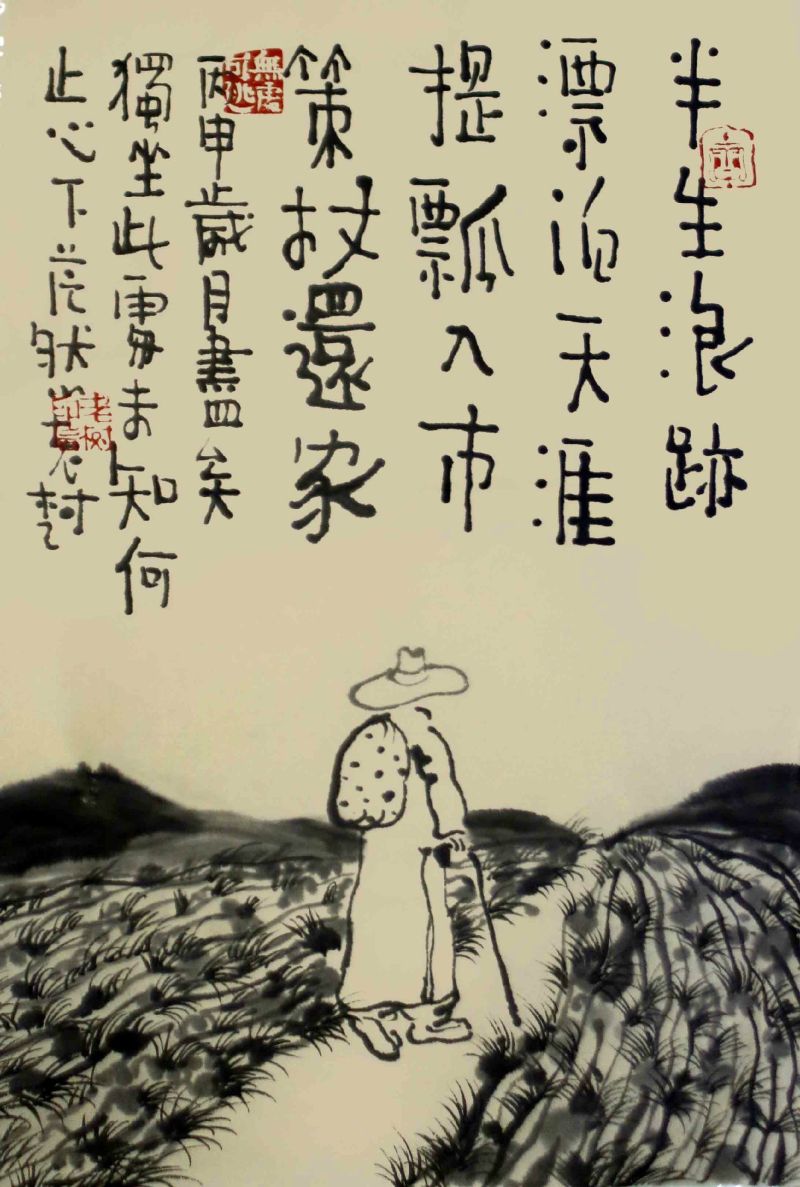 半生浪跡
漂泊天涯
提瓢入市
策杖還家
丙申歲月盡四矣
獨坐此處未知何
止心下茫然
無處可逃
老樹